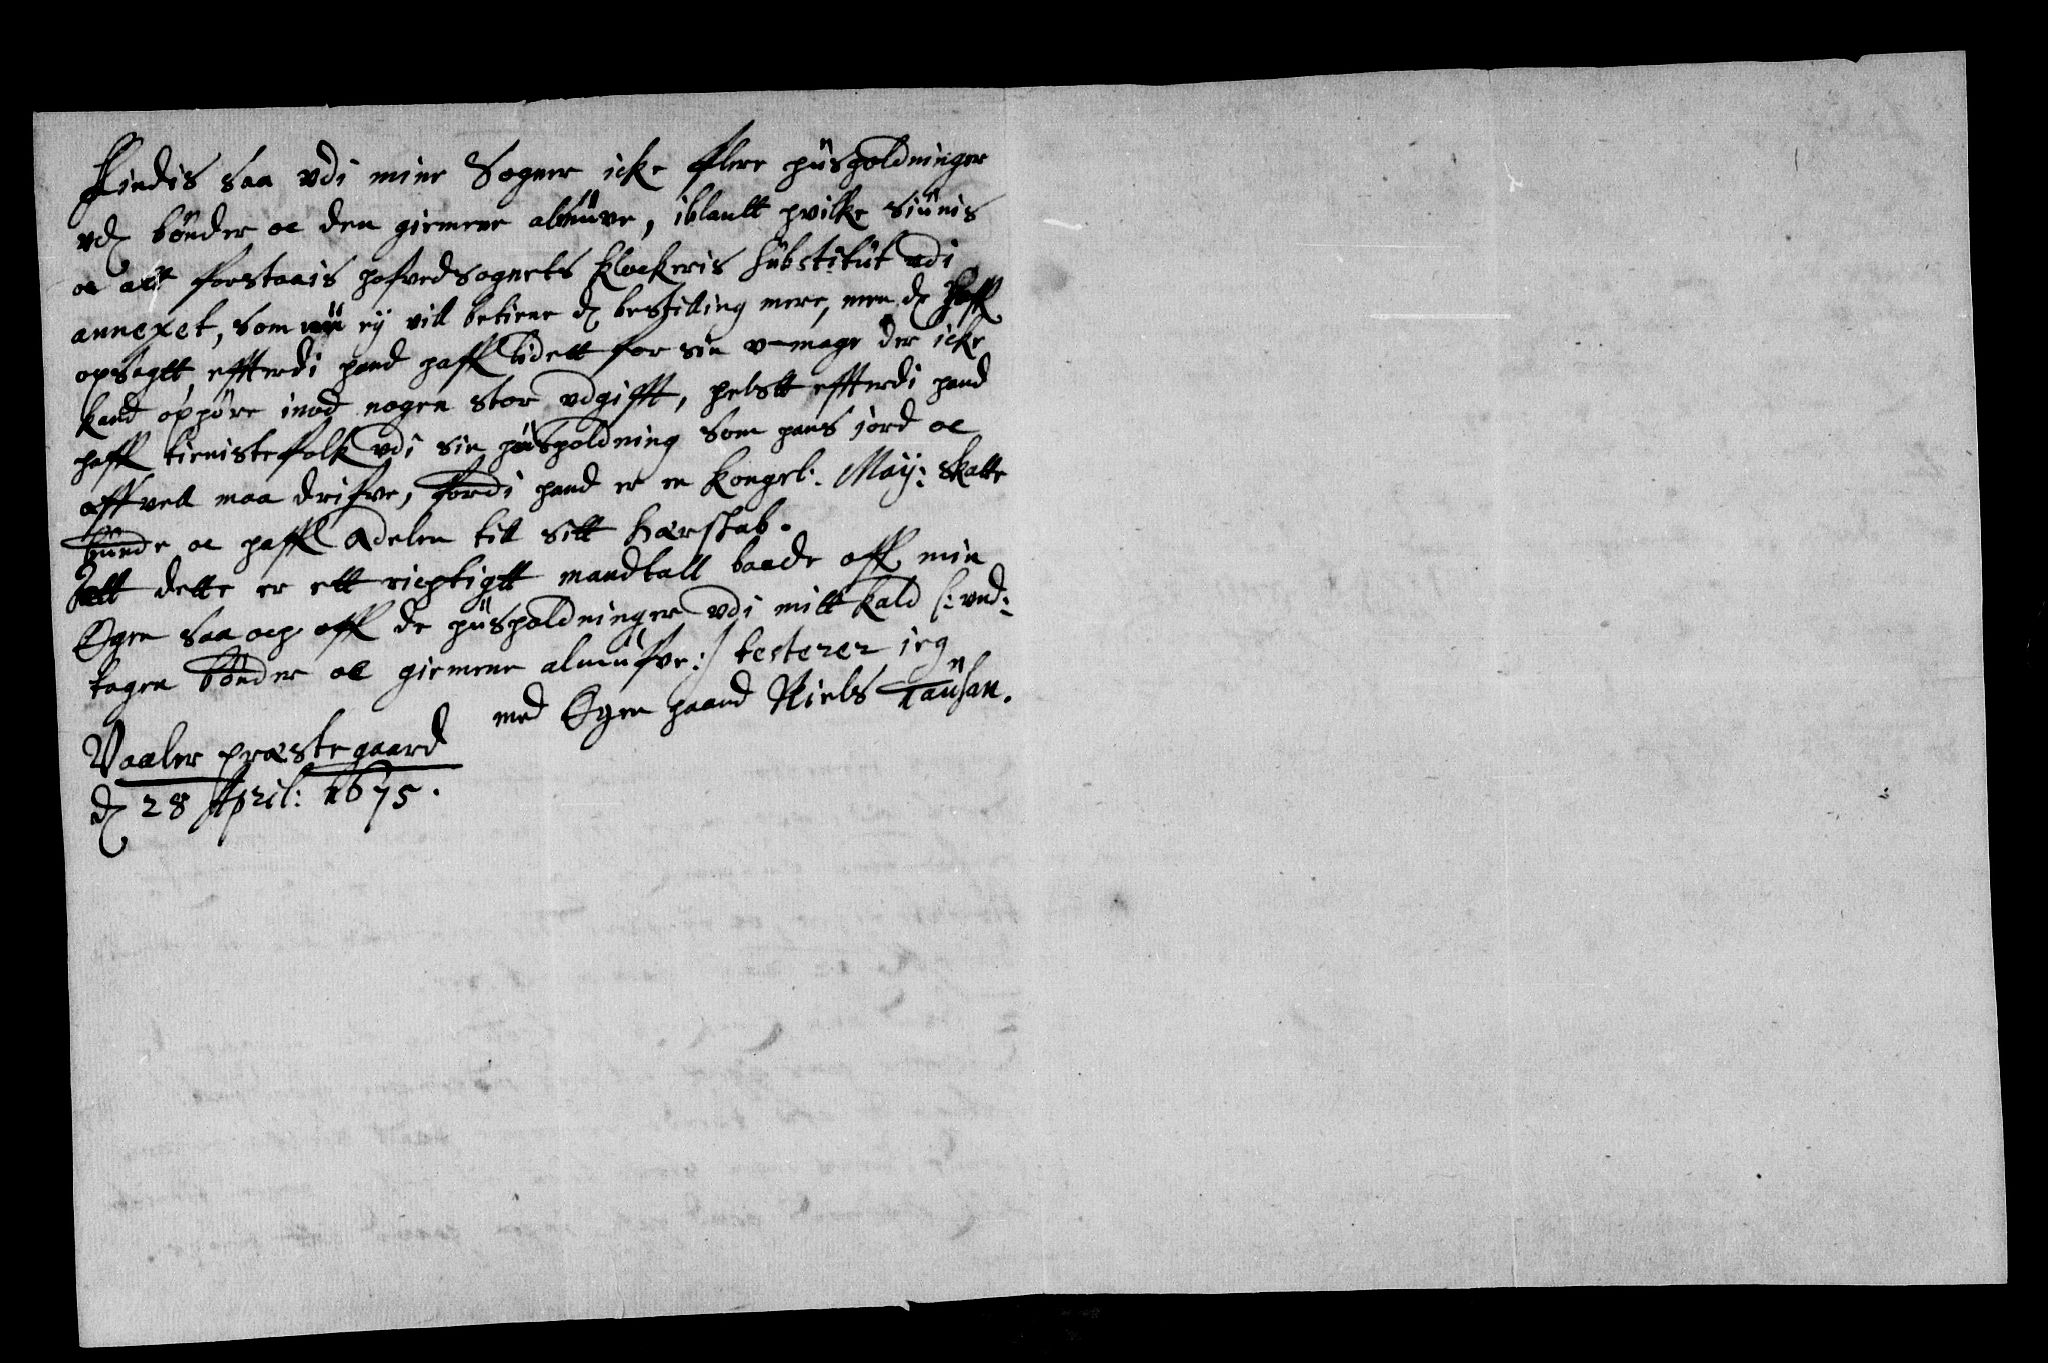 Findis saa vdi mine Sogner icke flere hüsholdninger
vd bönder oc den giemene almüve, iblantt hvilke siünis
oc att forstaais hofvedsognets Klockeris Substitut vdi
annexet, som nü ey vill betiene d bestilling mere, men de haff
opsagtt, effterdi hand haff lidett for sin v-mage der icke
kand ophöre imod nogen stor vdgifft, helstt effterdi hand
haff tienistefolk vdi sin hüsholdning som hans jord oc
affvell maa drifve, fordi hand er en Kongel: May: Skatte
bünde oc haffl Adelen till sitt hærskab.
Att dette er ett richtigtt mandtall baade aff min
Egen saa och aff de hüsholdninger vdi mitt kald /: und:
tagen bönder oc giemene almüfve:/ testerer ieg
med Egen haand Niels Taüsan.
Vaaler præstegaard
d 28 April: 1675.